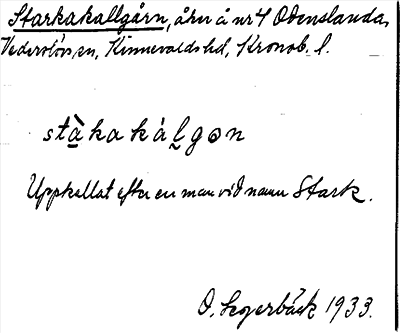 Starkakallgårn, åker å nr 4 Odenslanda,
Vederslövs sn, Kinnevalds hd, Kronob. l.
stàkakálgon
Uppkallat efter en man vid namn Stark.
O. Segerbäck 1933.